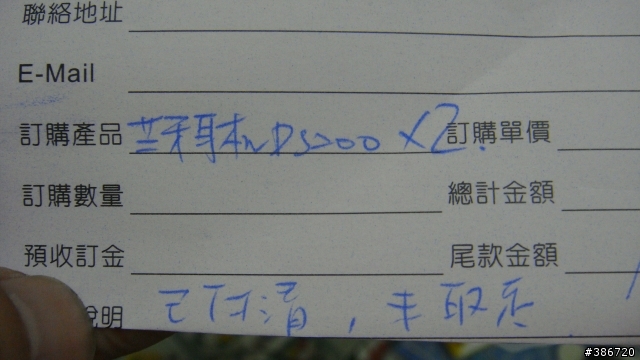 聯絡地址
E-Mail
訂購產品 藍牙耳机 DS200 X2 訂購單價
訂購數量 總計金額
預收訂金 尾款金額
說明 已付清，未取貨
#386720